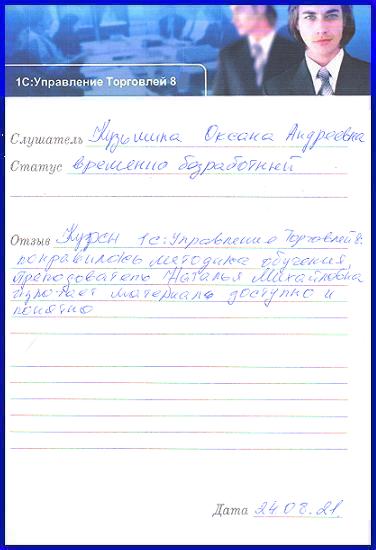 1С:Управление Торговлей 8
Слушатель Кузьмина Оксана Андреевна
Статус временно безработный
Отзыв Курсы 1С:Управление Торговлей8:
понравилась методика обучения,
преподаватель Наталья Михайловна
излогает материалы доступно и
понятно
Дата 24.08.21.